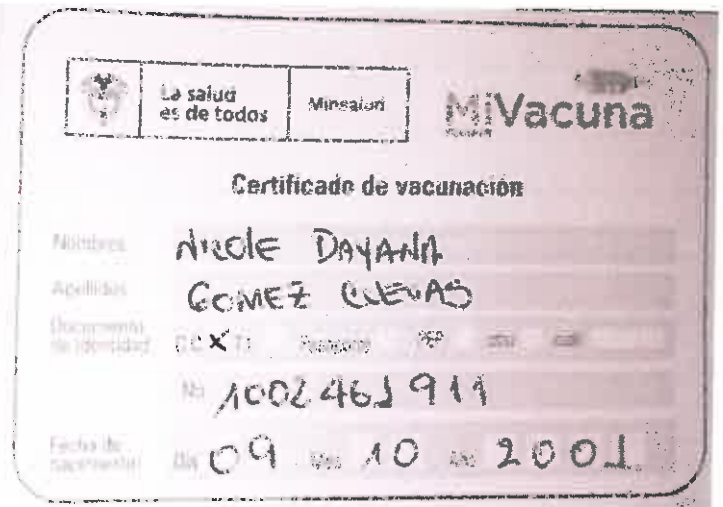 La salud
es de todos
Minsalud
MiVacuna
Certificado de vacunación
Nombres NICOLE DAYANA
Apellidos GOMEZ CUEVAS
Documento
de identidad C.C X T.I Pasaporte
No 1002461911
Fecha de
nacimiento Día 09 Mes 10 Año 2001